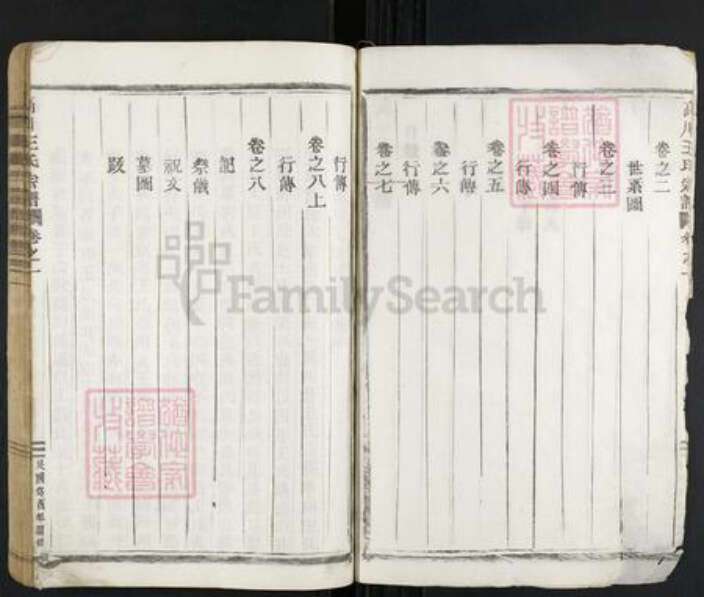 卷之二
世系圖
卷之三
行傳
卷之四
行傳
卷之五
行傳
卷之六
行傳
卷之七
行傳
卷之八上
行傳
卷之八
記
祭儀
祝文
墓圖
跋
川王氏宗譜
卷之一
FamilySearch